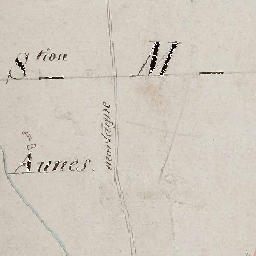 S.tion M
Aunes.
montagne